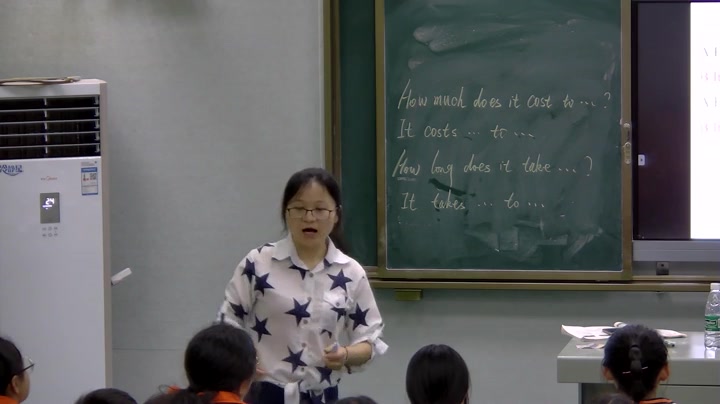 How much does it cost to ... ?
It costs ... to ...
How long does it take ... ?
It takes ... to ...
24